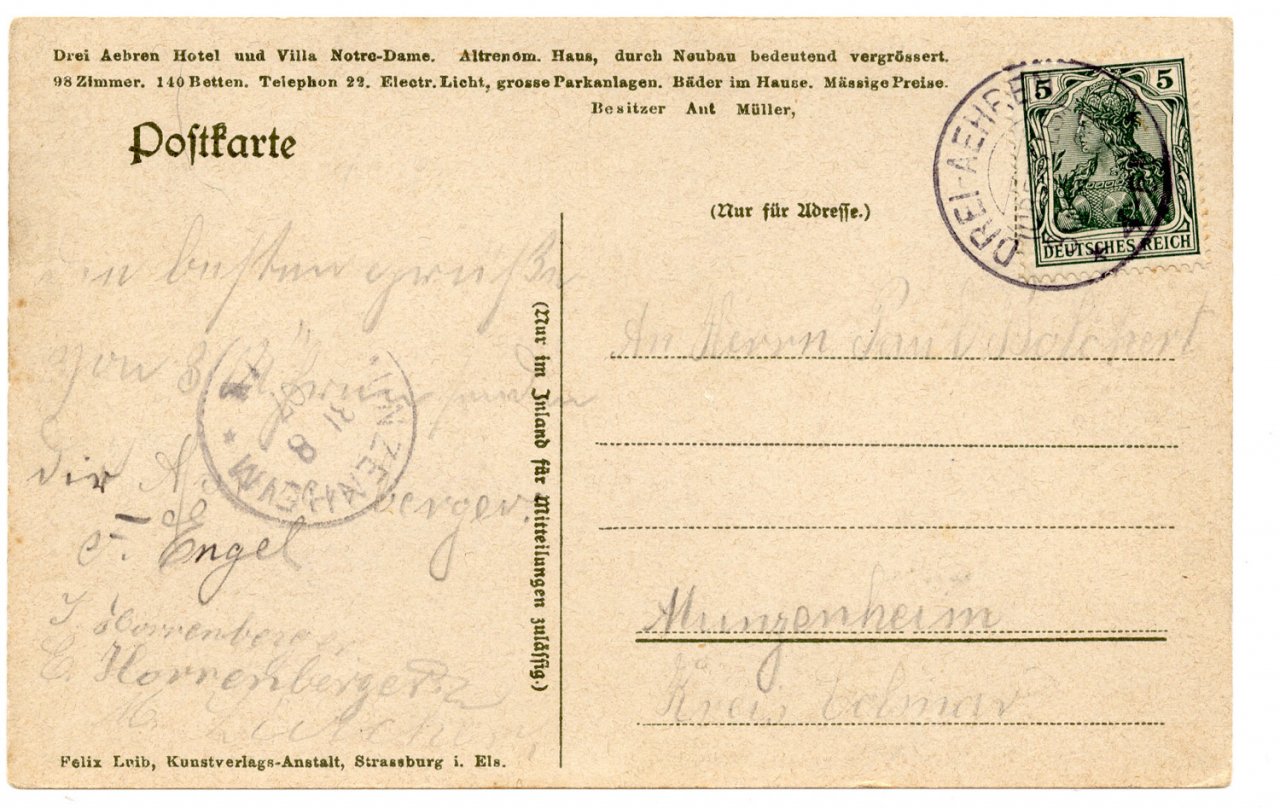 Drei Aehren Hotel und Villa Notre-Dame. Altrenom. Haus, durch Neubau bedeutend vergrössert.
98 Zimmer. 140 Betten. Telephon 22. Electr. Licht, grosse Parkanlagen. Bäder im Hause. Mässige Preise.
Besitzer Ant Müller,
Postkarte
(Nur für Adresse.)
DREI-AEHRE
5 5
DEUTSCHES REICH
den besten grüße
von
dir
berger.
F. Engel
J. Horrenberger
E. Horrenberger
M.
NZENHEIM
31 8
(Nur im Inland für Mitteilungen zulässig.)
An Herrn Paul
Munzenheim
Kreis Colmar
Felix Luib, Kunstverlags-Anstalt, Strassburg i. Els.